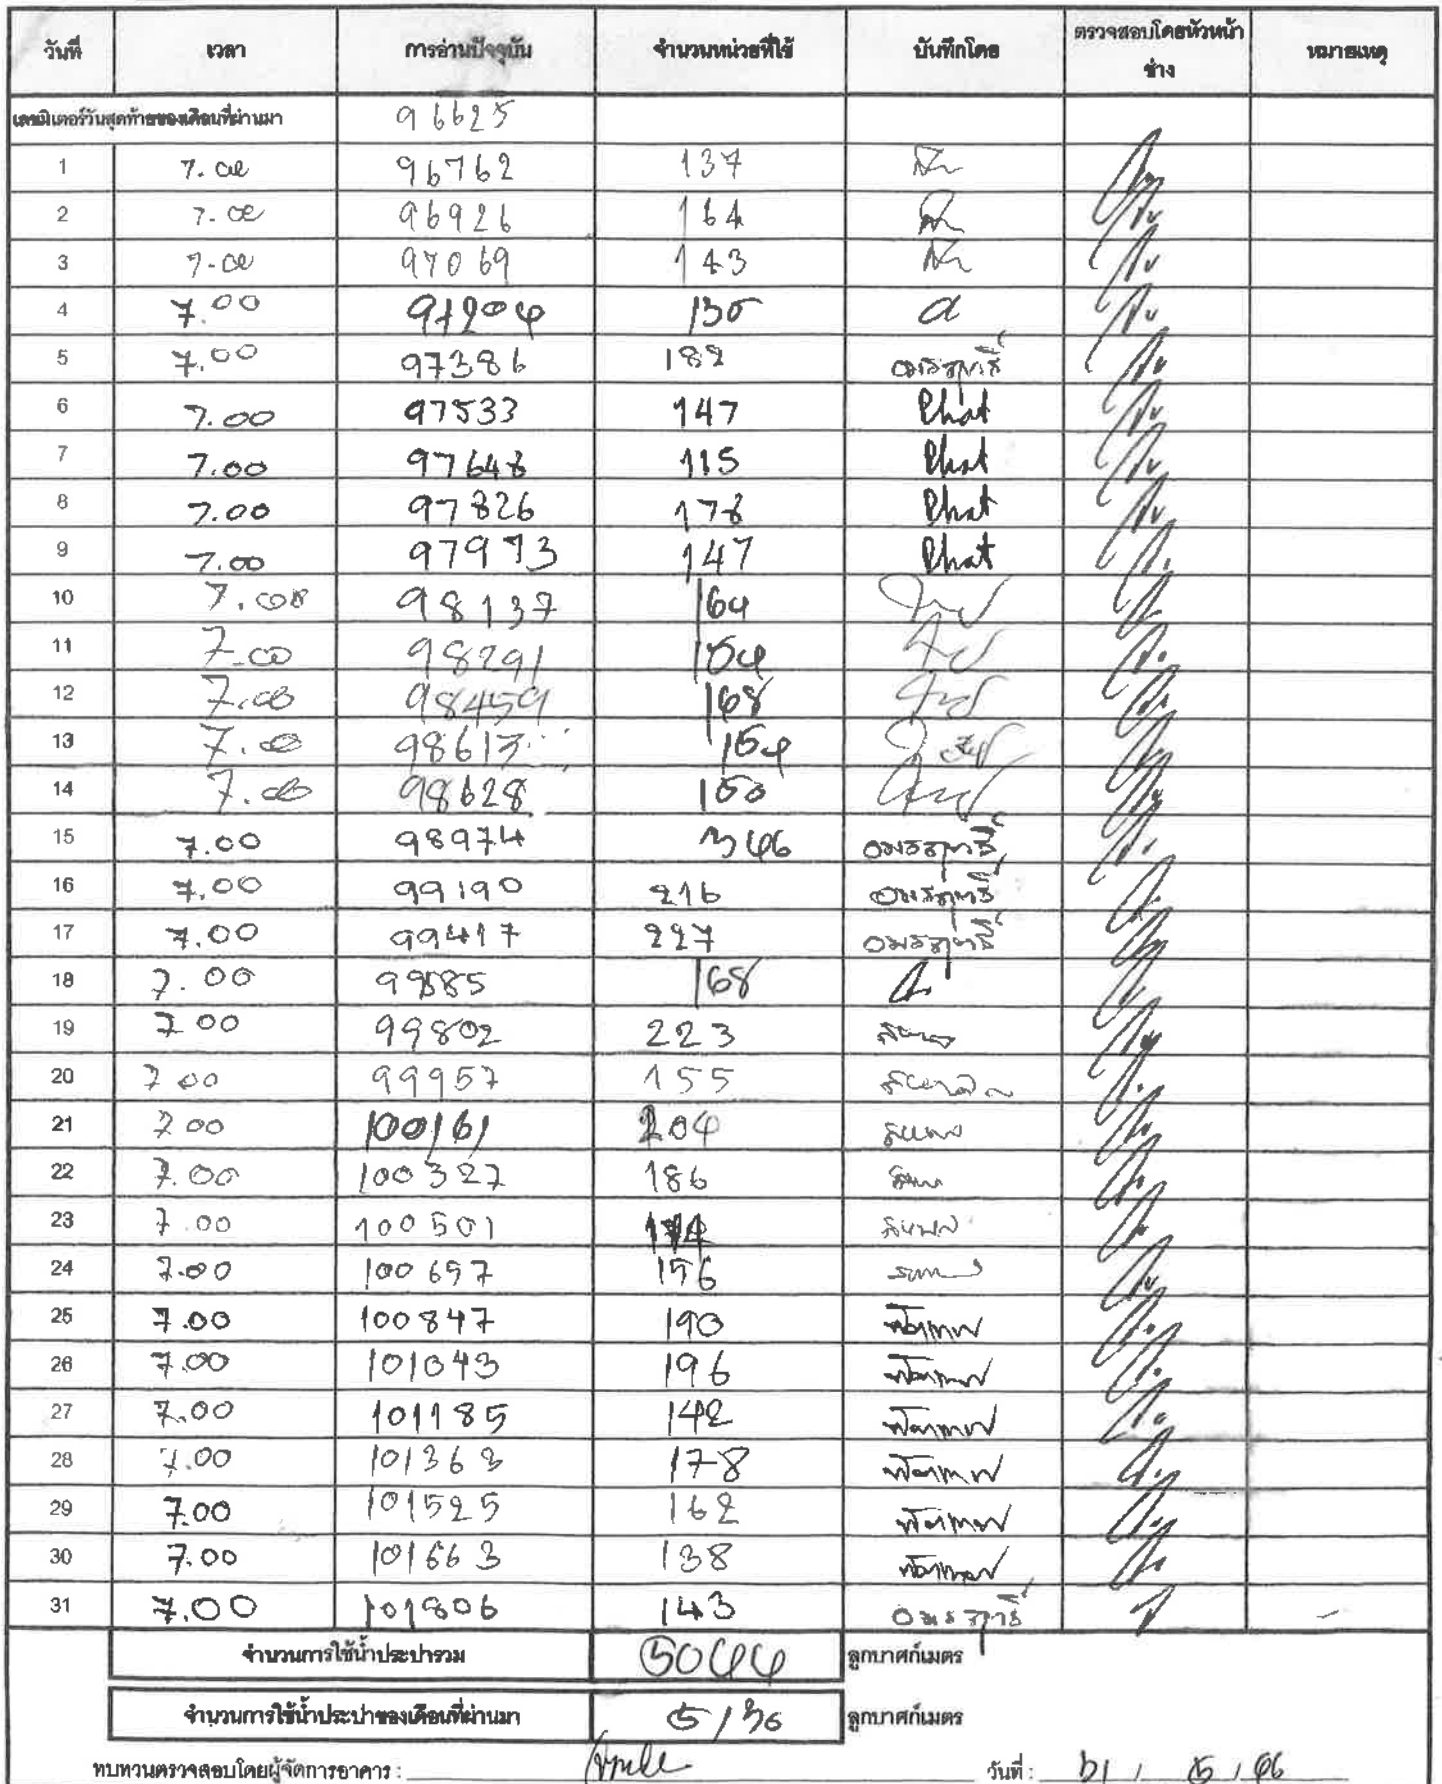 วันที่ เวลา การอ่านปัจจุบัน จำนวนหน่วยที่ใช้ บันทึกโดย ตรวจสอบโดยหัวหน้าช่าง หมายเหตุ
เลขมิเตอร์วันสุดท้ายของเดือนที่ผ่านมา 96625
1 7.00 96762 137
2 7.00 96926 164
3 7.00 97069 143
4 7.00 97204 135
5 7.00 97386 182
6 7.00 97533 147 Phat
7 7.00 97648 115 Phat
8 7.00 97826 178 Phat
9 7.00 97973 147 Phat
10 7.00 98137 164
11 7.00 98291 154
12 7.00 98459 168
13 7.00 98613 154
14 7.00 98628 150
15 7.00 98974 346
16 7.00 99190 216
17 7.00 99417 227
18 7.00 99585 168
19 7 00 99802 223
20 7 00 99957 155
21 7 00 100161 204
22 7.00 100327 186
23 7.00 100501 174
24 7.00 100657 156
25 7.00 100847 190
26 7.00 101043 196
27 7.00 101185 142
28 7.00 101363 178
29 7.00 101525 162
30 7.00 101663 138
31 7.00 101806 143
จำนวนการใช้น้ำประปารวม 5044 ลูกบาศก์เมตร
จำนวนการใช้น้ำประปาของเดือนที่ผ่านมา 5136 ลูกบาศก์เมตร
ทบทวนตรวจสอบโดยผู้จัดการอาคาร : วันที่ : 31 / 5 / 66